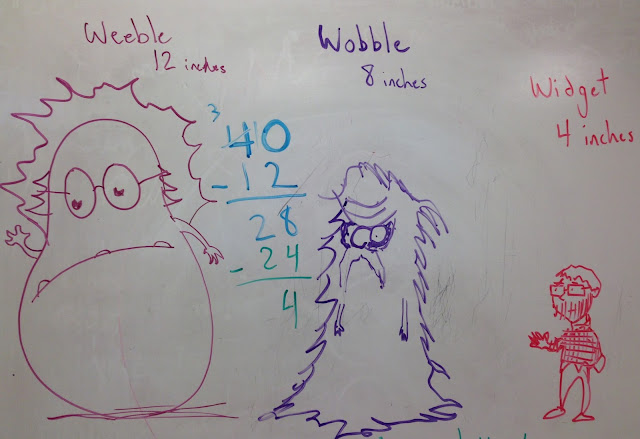 Weeble
12 inches
Wobble
8 inches
Widget
4 inches
3
40
-12
28
-24
4